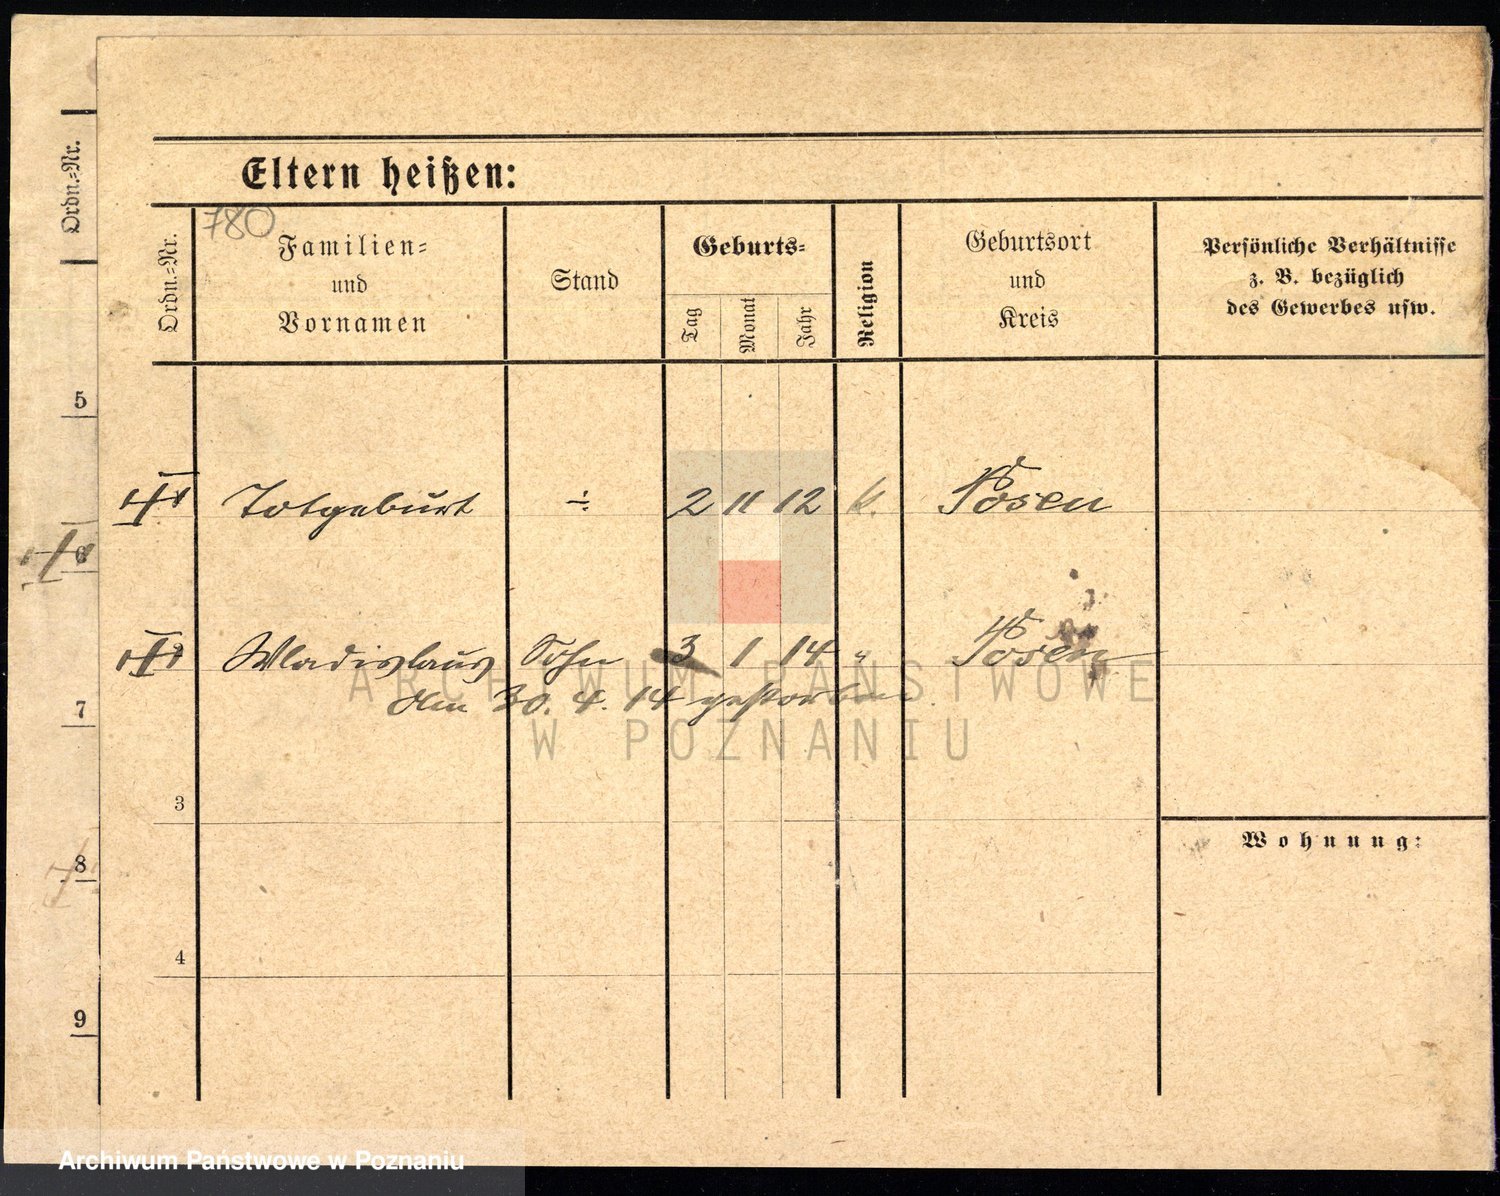 Eltern heißen:
780
Ordn.-Nr.
Ordn.-Nr.
Familien-
und
Vornamen
Stand
Geburts-
Tag
Monat
Jahr
Religion
Geburtsort
und
Kreis
Persönliche Verhältnisse
z. B. bezüglich
des Gewerbes usw.
5
Totgeburt ÷ 2 11 12 k. Posen
6
Wladislaus Sohn 3 1 14 " Posen
ARCHIWUM PAŃSTWOWE
den 30. 4. 14 gestorben.
7
W POZNANIU
3
Wohnung:
8
4
9
Archiwum Państwowe w Poznaniu